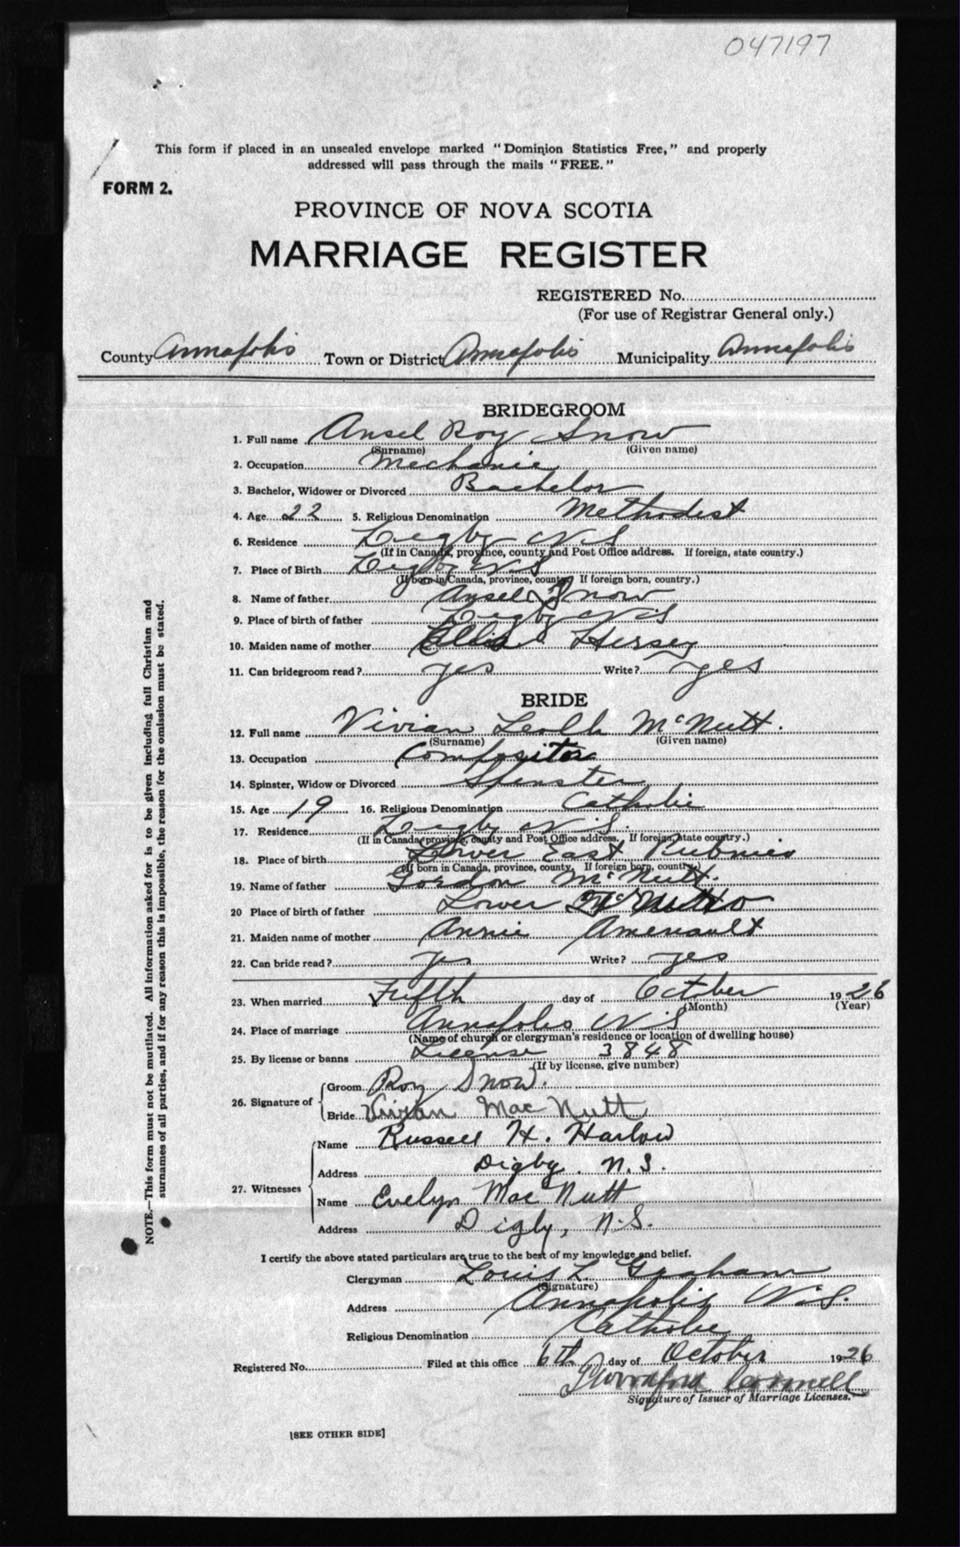 047197
This form if placed in an unsealed envelope marked "Dominion Statistics Free," and properly
addressed will pass through the mails "FREE."
FORM 2.
PROVINCE OF NOVA SCOTIA
MARRIAGE REGISTER
REGISTERED No.
(For use of Registrar General only.)
County Annapolis Town or District Annapolis Municipality Annapolis
BRIDEGROOM
1. Full name Ansel Roy Snow
(Surname) (Given name)
2. Occupation Mechanic
3. Bachelor, Widower or Divorced Bachelor
4. Age 22 5. Religious Denomination Methodist
6. Residence Digby N S
(If in Canada, province, county and Post Office address. If foreign, state country.)
7. Place of Birth Digby N S
(If born in Canada, province, county If foreign born, country.)
8. Name of father Ansel Snow
9. Place of birth of father Digby N S
10. Maiden name of mother Hersey
11. Can bridegroom read? yes Write? yes
BRIDE
12. Full name Vivian McNutt.
(Surname) (Given name)
13. Occupation Compositor
14. Spinster, Widow or Divorced Spinster
15. Age 19 16. Religious Denomination Catholic
17. Residence Digby N S.
(If in Canada, province, county and Post Office address. If foreign, state country.)
18. Place of birth Lower East Pubnico
(If born in Canada, province, county, If foreign born, country.)
19. Name of father Gordon McNutt.
20 Place of birth of father Lower
21. Maiden name of mother Annie
22. Can bride read? yes Write? yes
23. When married Fifth day of October 1926
(Month) (Year)
24. Place of marriage Annapolis N S
(Name of church or clergyman's residence or location of dwelling house)
25. By license or banns License 3848
(If by license, give number)
26. Signature of
Groom Roy Snow.
Bride Vivian MacNutt
27. Witnesses
Name Russell H. Harlow
Address Digby. N.S.
Name Evelyn MacNutt
Address Digby, N.S.
I certify the above stated particulars are true to the best of my knowledge and belief.
Clergyman Louis L. Graham
(Signature)
Address Annapolis N.S.
Religious Denomination Catholic
Registered No. Filed at this office 6th day of October 1926
Signature of Issuer of Marriage Licenses.
[SEE OTHER SIDE]
NOTE.—This form must not be mutilated. All information asked for is to be given including full Christian and
surnames of all parties, and if for any reason this is impossible, the reason for the omission must be stated.